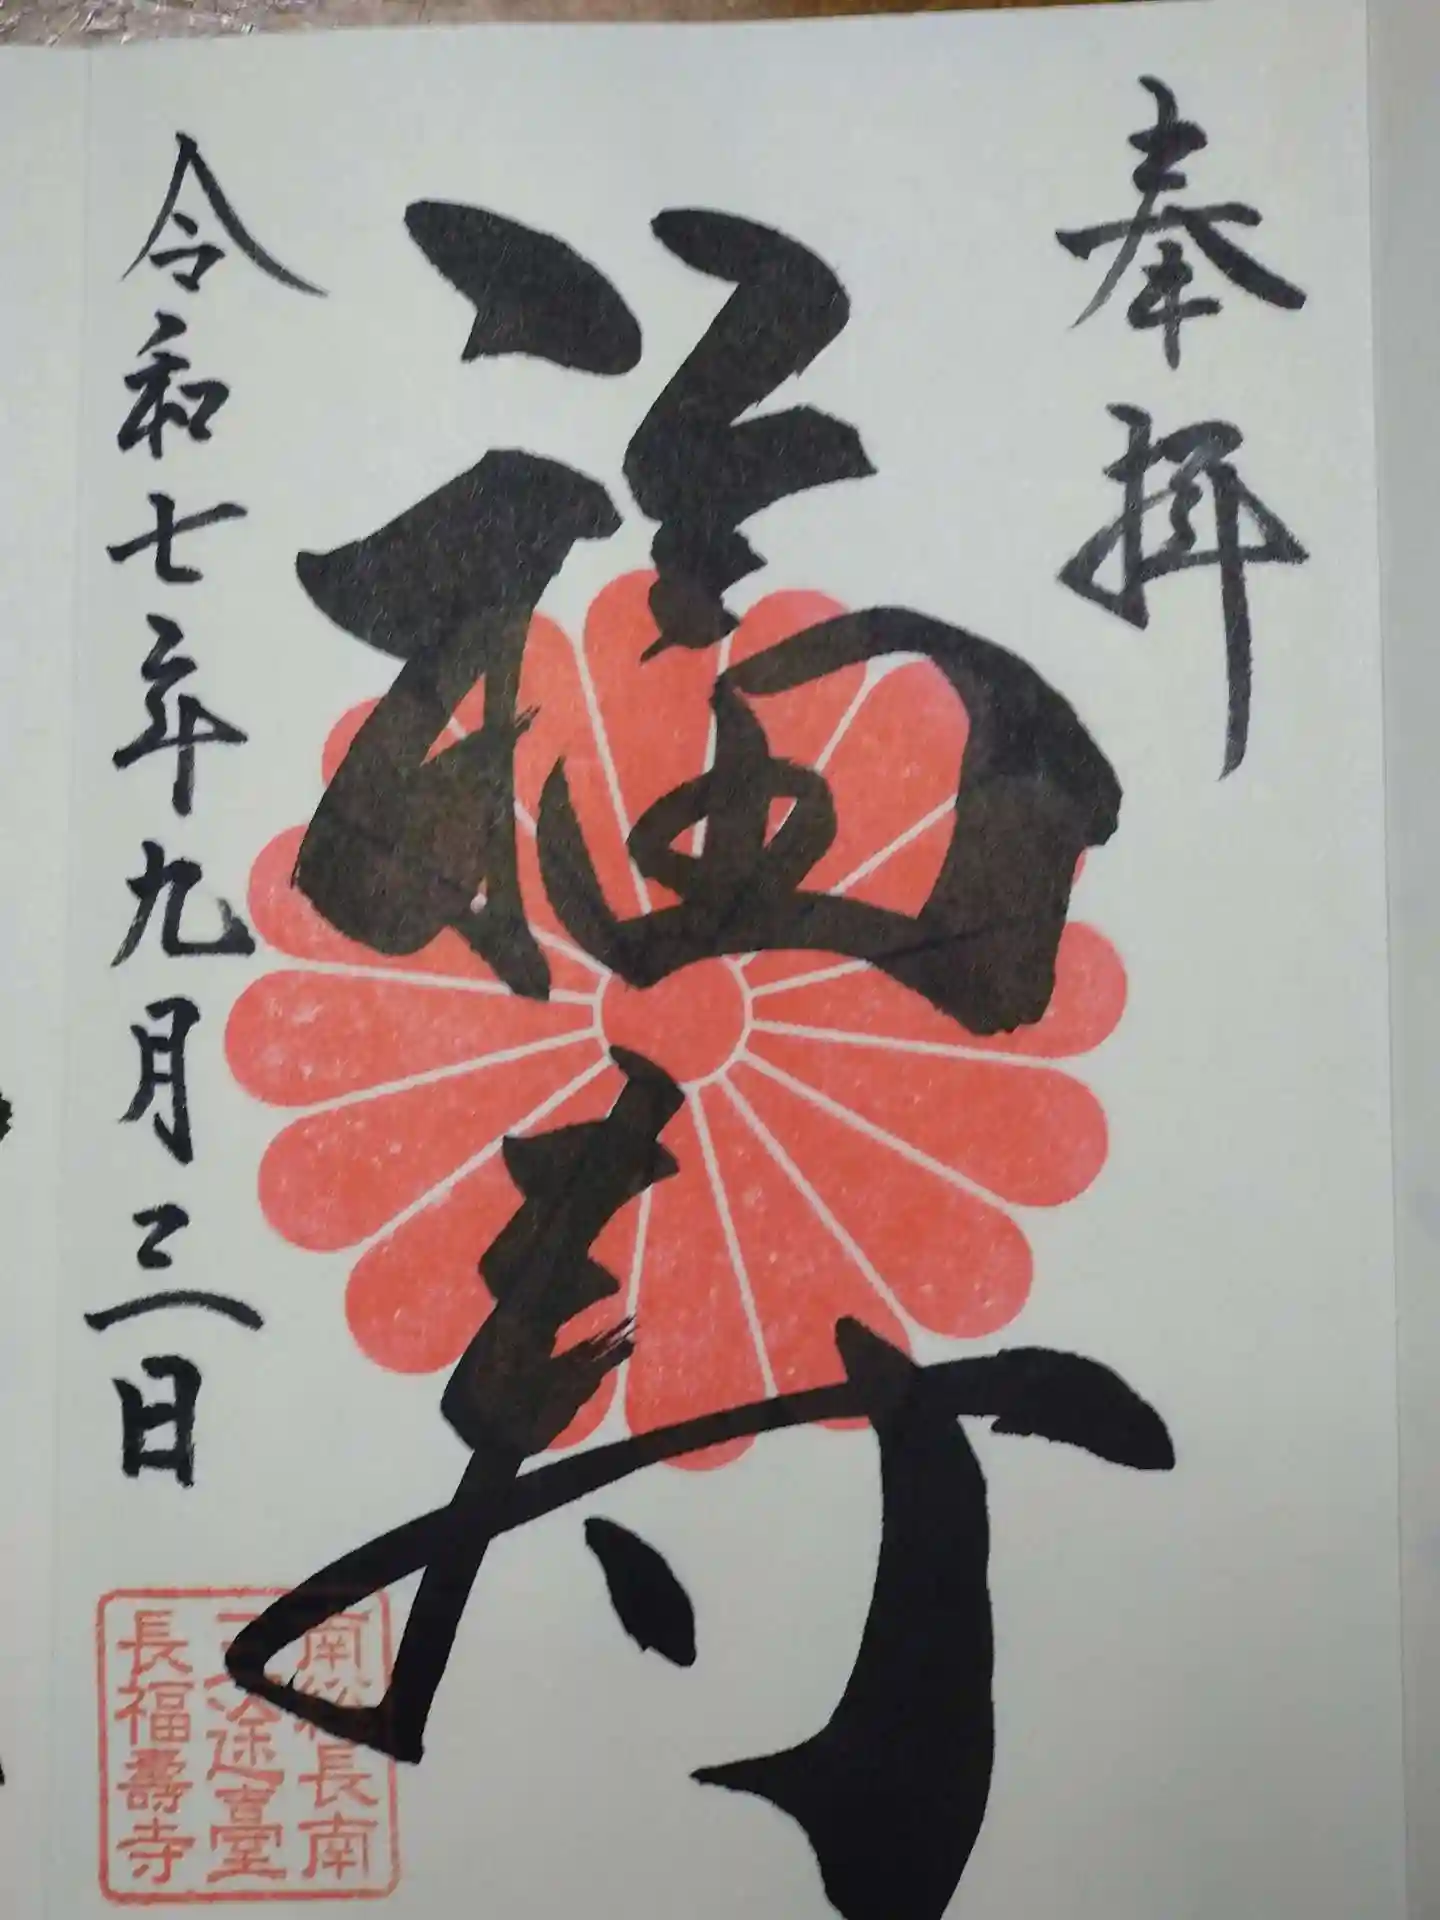 奉拝
福寿
令和七年九月三日
南総長南
三途臺
長福壽寺